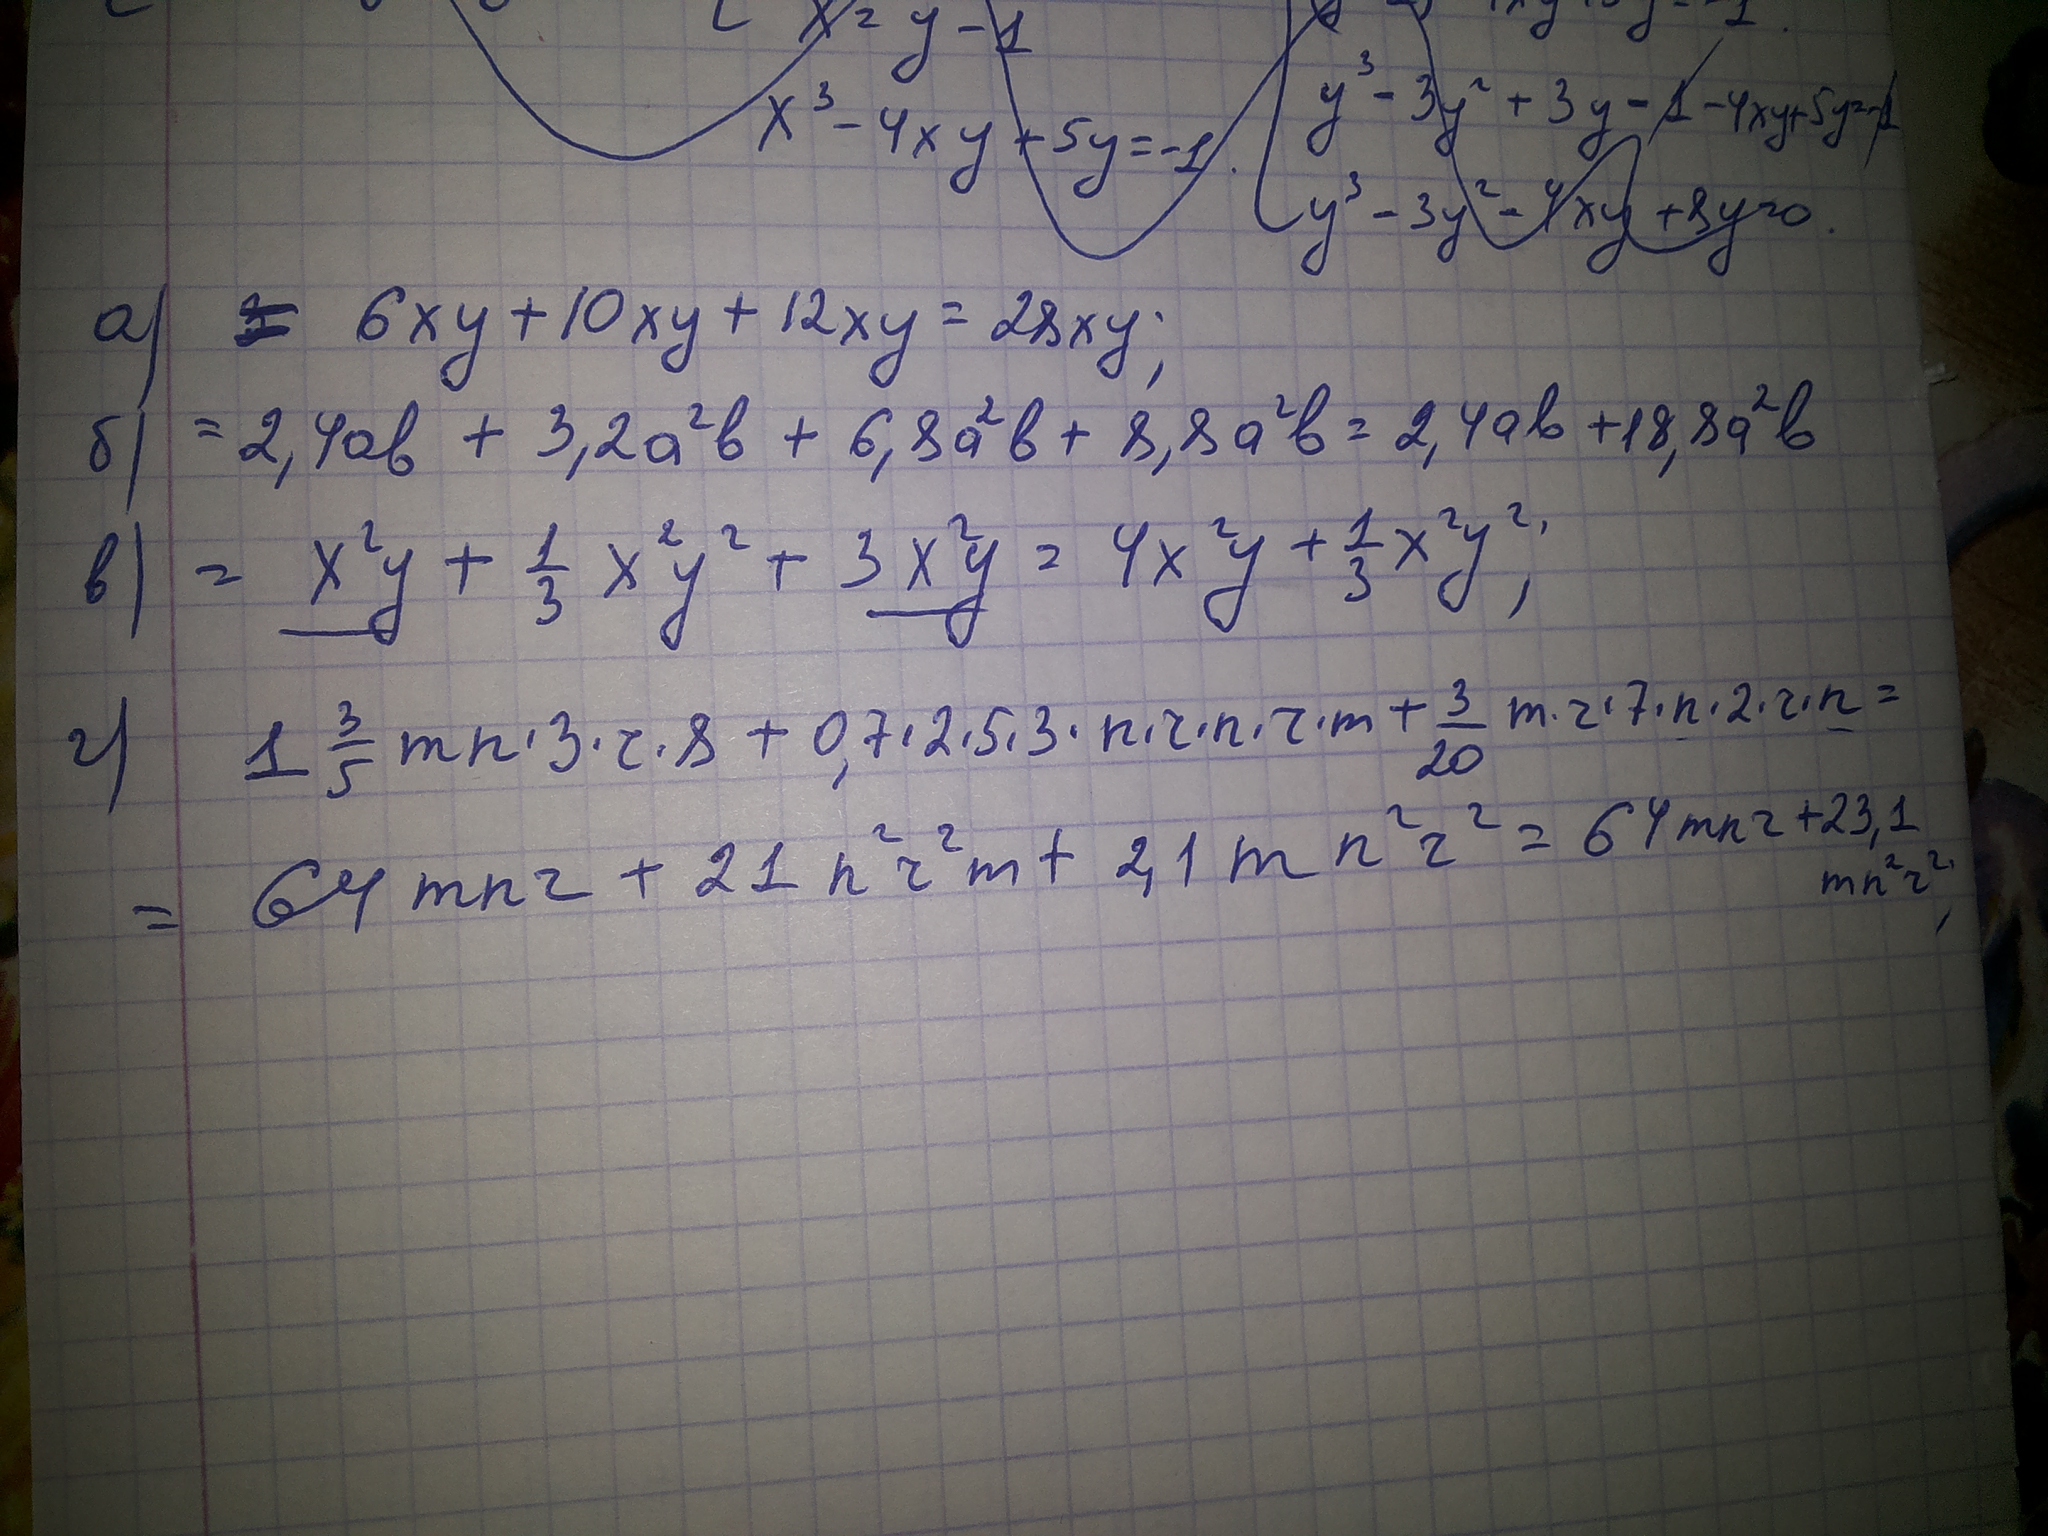 x = y - 1
x³ - 4xy + 5y = -1.
y³ - 3y² + 3y - 1 - 4xy + 5y = -1
y³ - 3y² - 4xy + 8y = 0.
а) 6xy + 10xy + 12xy = 28xy;
б) = 2,4ab + 3,2a²b + 6,8a²b + 8,8a²b = 2,4ab + 18,8a²b
в) = x²y + 1/3 x²y² + 3x²y = 4x²y + 1/3 x²y²;
г) 1 3/5 mn·3·r·8 + 0,7·2·5·3·n·r·n·r·m + 3/20 m·r·7·n·2·r·n =
= 64mnr + 21n²r²m + 2,1mn²r² = 64mnr + 23,1
mn²r²;